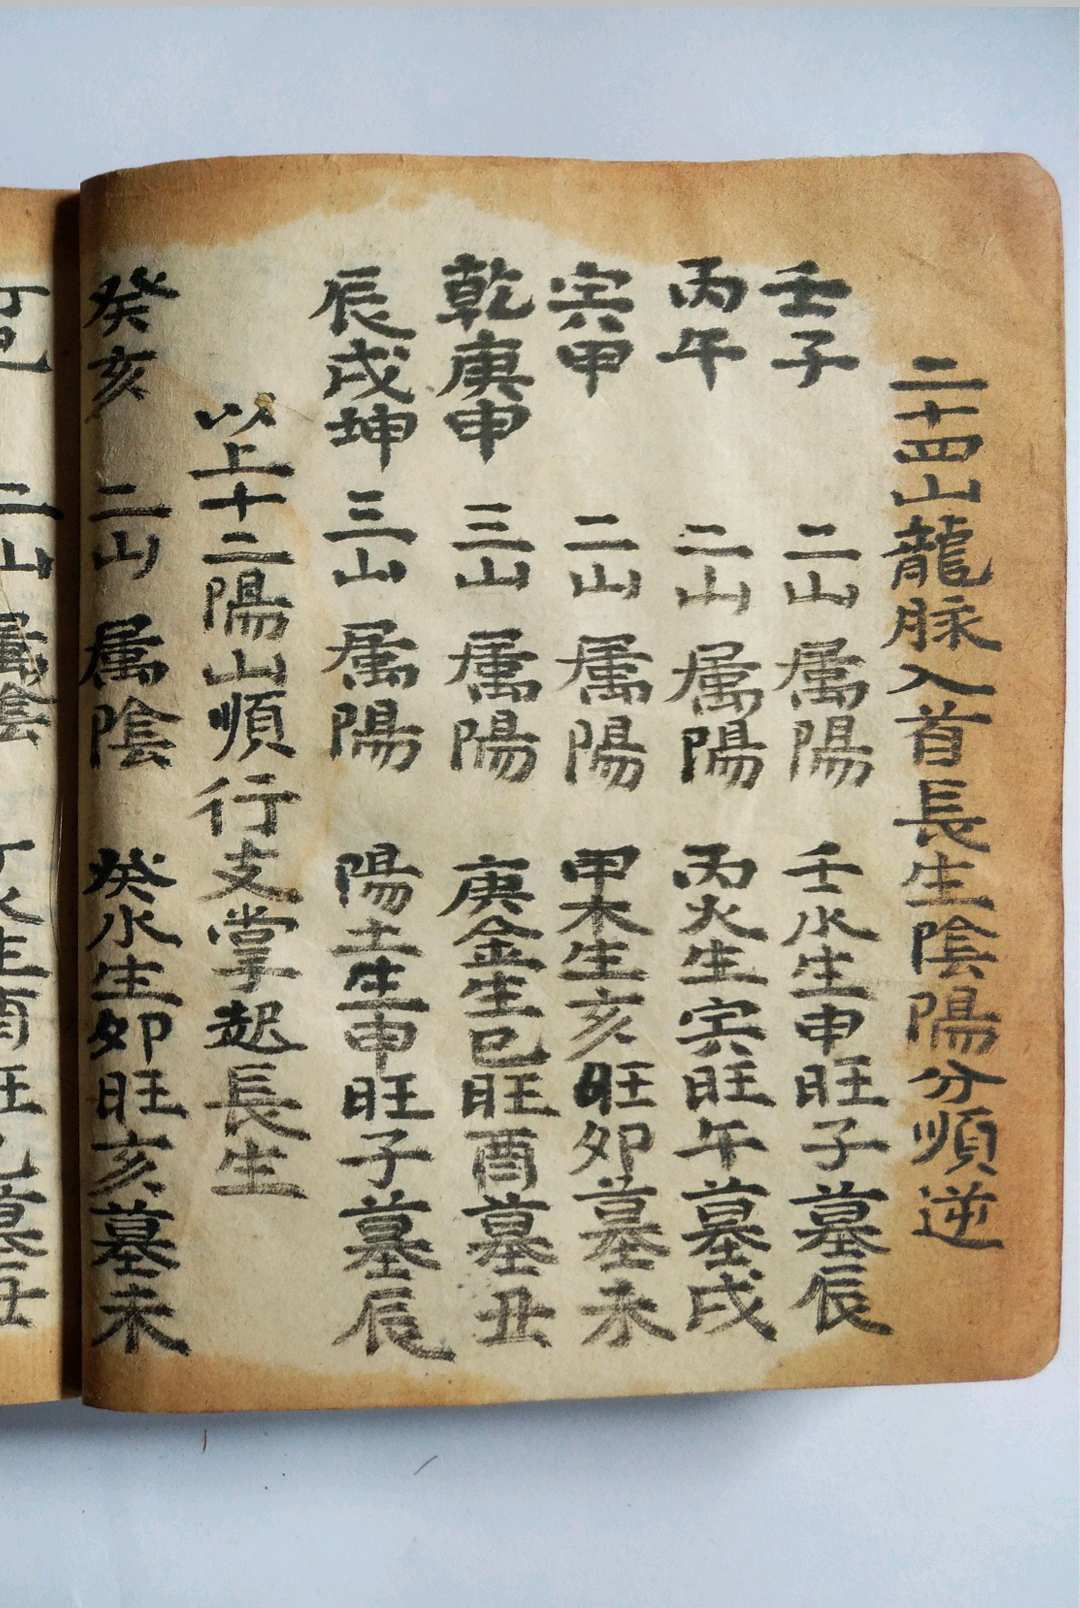 二十四山龍脉入首長生陰陽分順逆
壬子 二山属陽 壬水生申旺子墓辰
丙午 二山属陽 丙火生寅旺午墓戌
寅甲 二山属陽 甲木生亥旺卯墓未
乾庚申 三山属陽 庚金生巳旺酉墓丑
辰戌坤 三山属陽 陽土生申旺子墓辰
以上十二陽山順行支掌起長生
癸亥 二山属陰 癸水生卯旺亥墓未
二山属陰